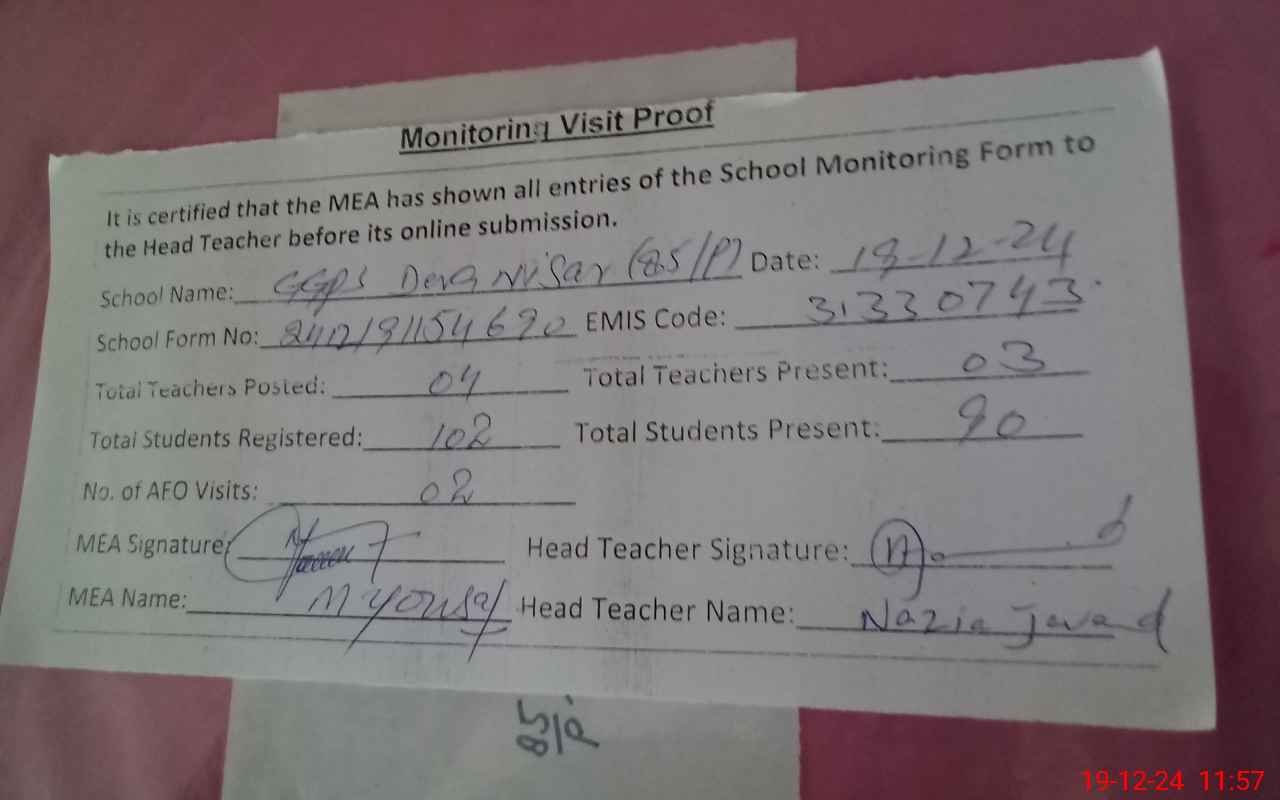 Monitoring Visit Proof
It is certified that the MEA has shown all entries of the School Monitoring Form to
the Head Teacher before its online submission.
School Name: GGPS Dera Nisar (85/P) Date: 19-12-24
School Form No: 2412191154690 EMIS Code: 31330743
Total Teachers Posted: 04 Total Teachers Present: 03
Total Students Registered: 102 Total Students Present: 90
No. of AEO Visits: 02
MEA Signature: Head Teacher Signature:
MEA Name: M Yousaf Head Teacher Name: Nazia javad
85/P
19-12-24 11:57